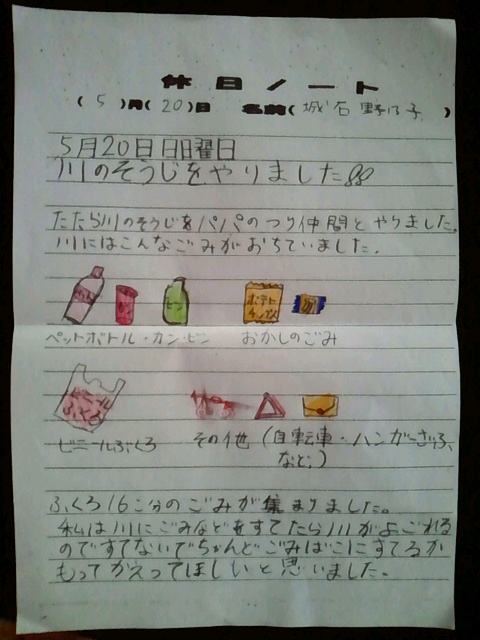 休日ノート
(5)月(20)日 名前(城石野乃子)
5月20日日曜日
川のそうじをやりました
たたら川のそうじをパパのつり仲間とやりました。
川にはこんなごみがおちていました。
ビン
ポテトチップス
ペットボトル・カン・ビン おかしのごみ
ビニールぶくろ その他(自転車・ハンガー・さいふ
など。)
ふくろ16こ分のごみが集まりました。
私は川にごみなどをすてたら川がよごれる
のですてないでちゃんとごみばこにすてるか
もってかえってほしいと思いました。